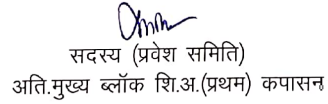 सदस्य (प्रवेश समिति)
अति.मुख्य ब्लॉक शि.अ.(प्रथम) कपासन